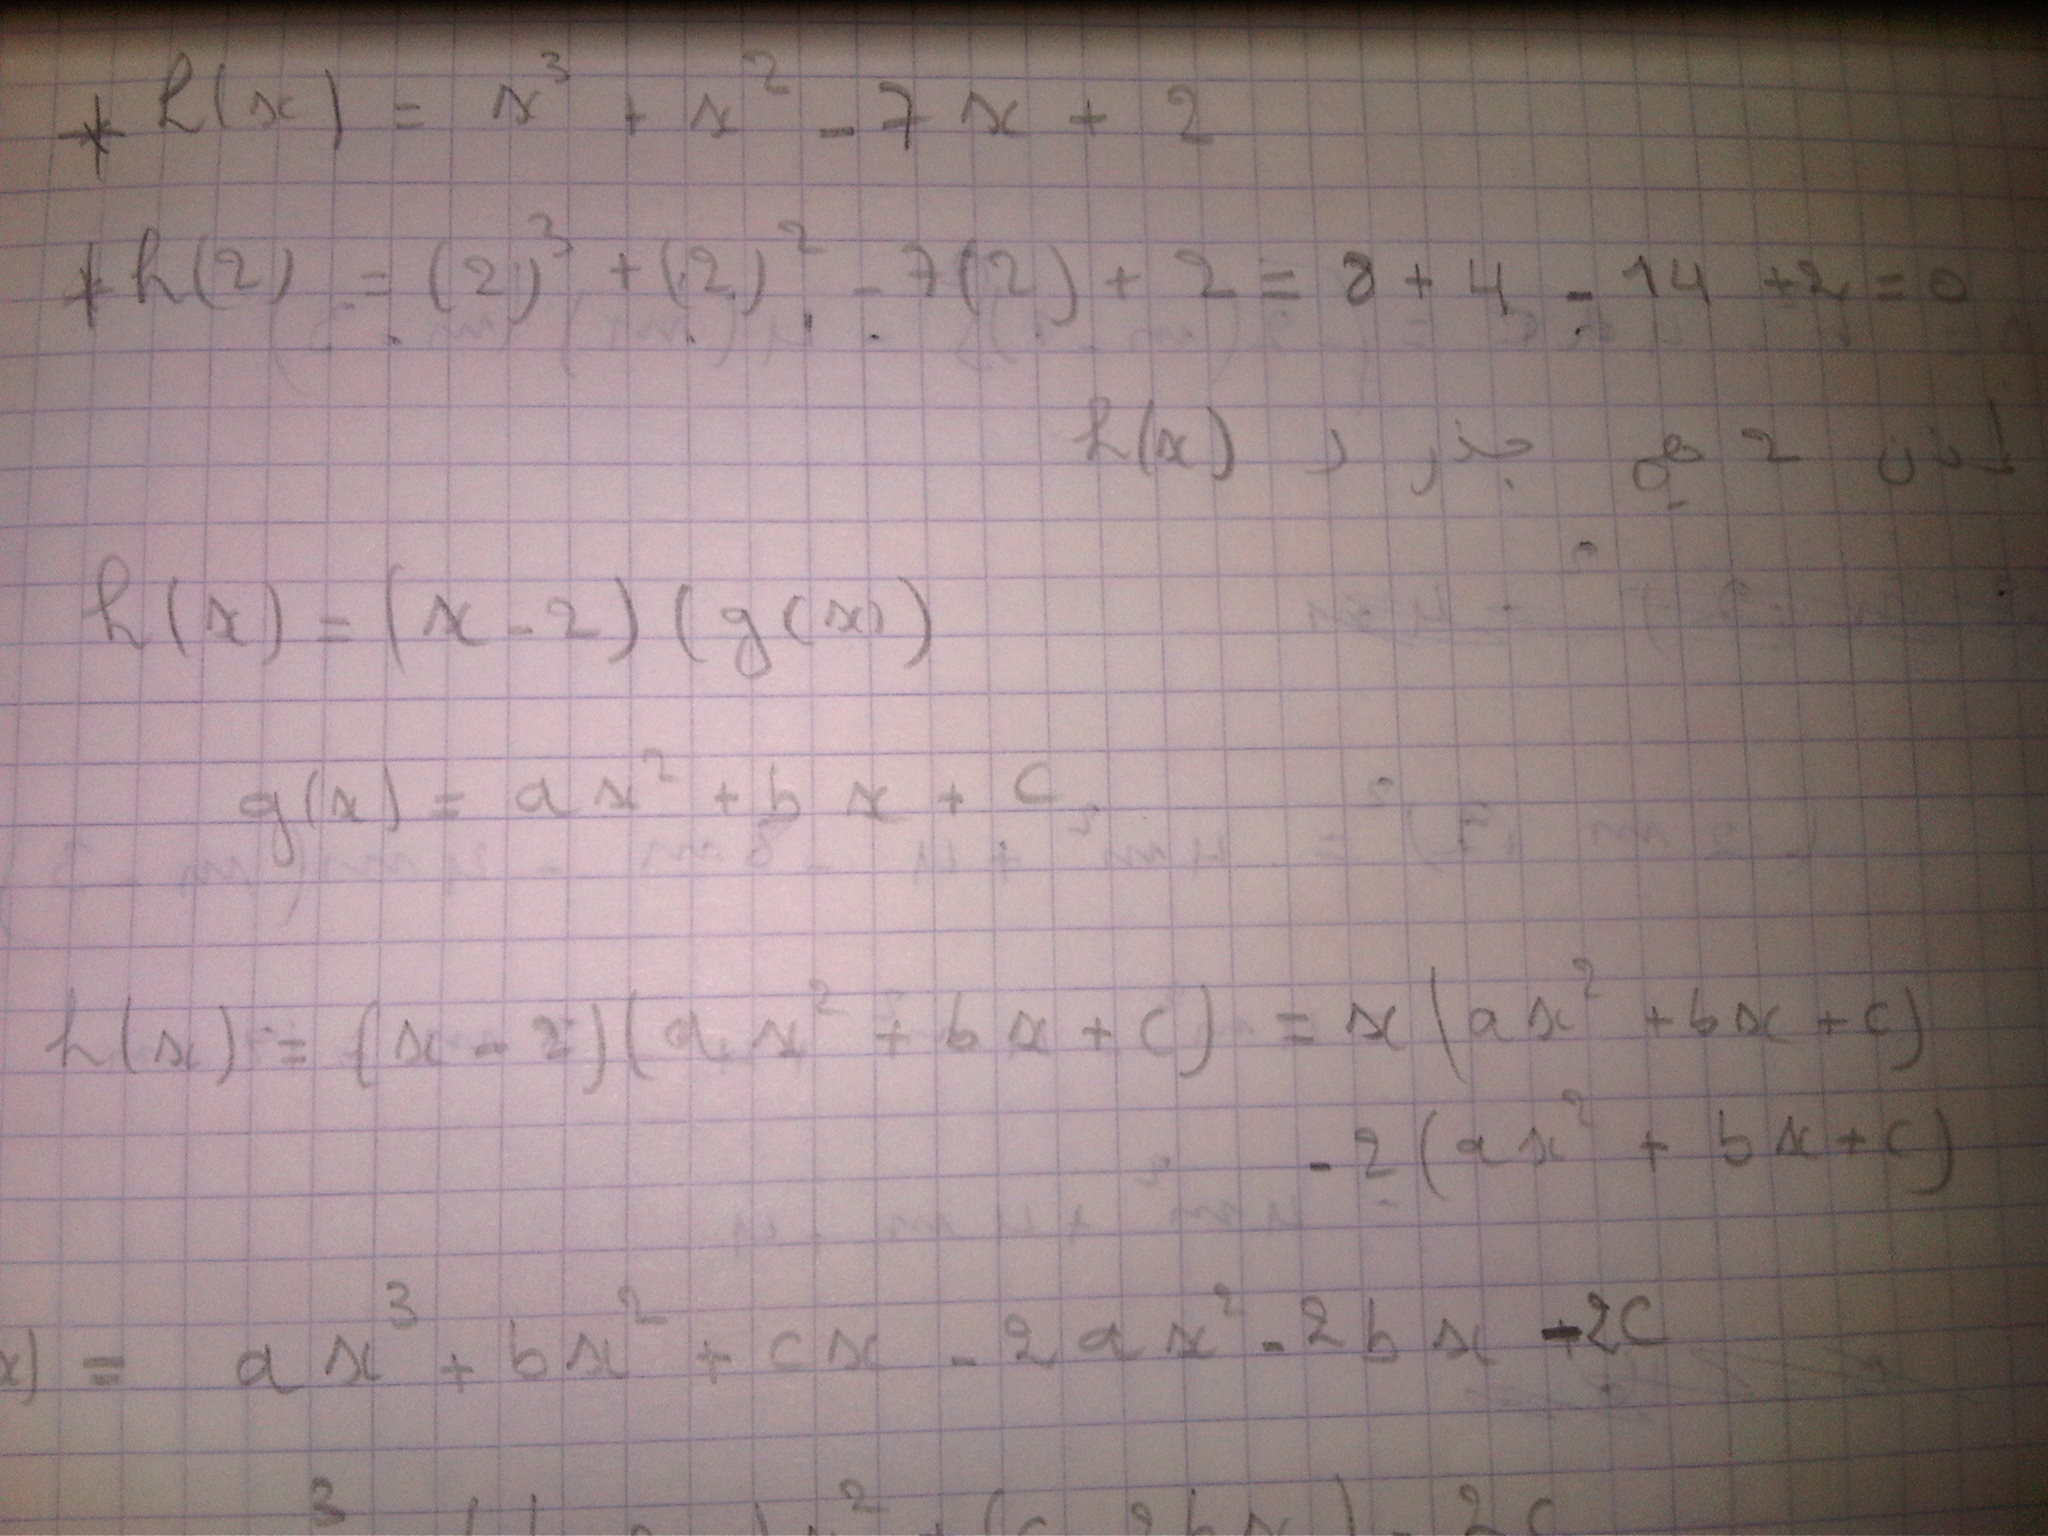 * h(x) = x³ + x² - 7x + 2
* h(2) = (2)³ + (2)² - 7(2) + 2 = 8 + 4 - 14 + 2 = 0
إذن 2 هو جذر لـ h(x)
h(x) = (x - 2)(g(x))
g(x) = ax² + bx + c.
h(x) = (x - 2)(ax² + bx + c) = x(ax² + bx + c)
- 2(ax² + bx + c)
x) = ax³ + bx² + cx - 2ax² - 2bx - 2c